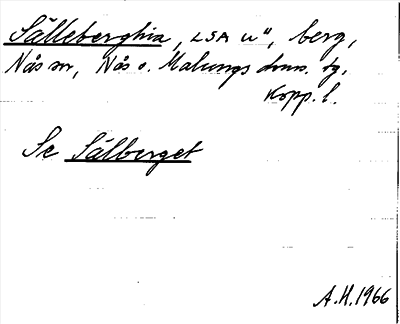 Sälleberghia, LSA u", berg,
Nås sn, Nås o. Malungs doms. tg,
Kopp. l.
Se Sälberget
A.H.1966